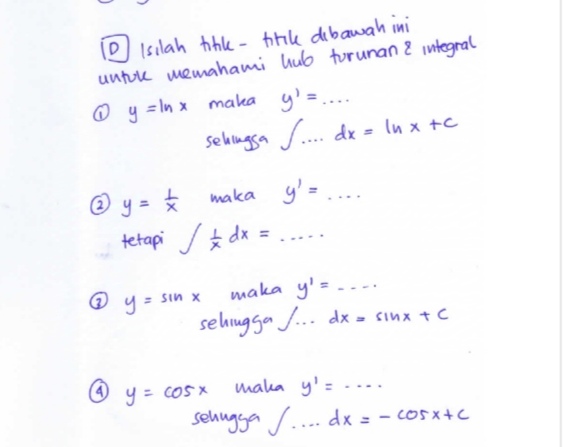 D Isilah titik - titik dibawah ini
untuk memahami hub turunan & integral
① y = ln x maka y' = ....
sehingga ∫ .... dx = ln x + c
② y = 1/x maka y' = ....
tetapi ∫ 1/x dx = .....
③ y = sin x maka y' = ....
sehingga ∫ ... dx = sin x + c
④ y = cos x maka y' = ....
sehingga ∫ .... dx = - cos x + c